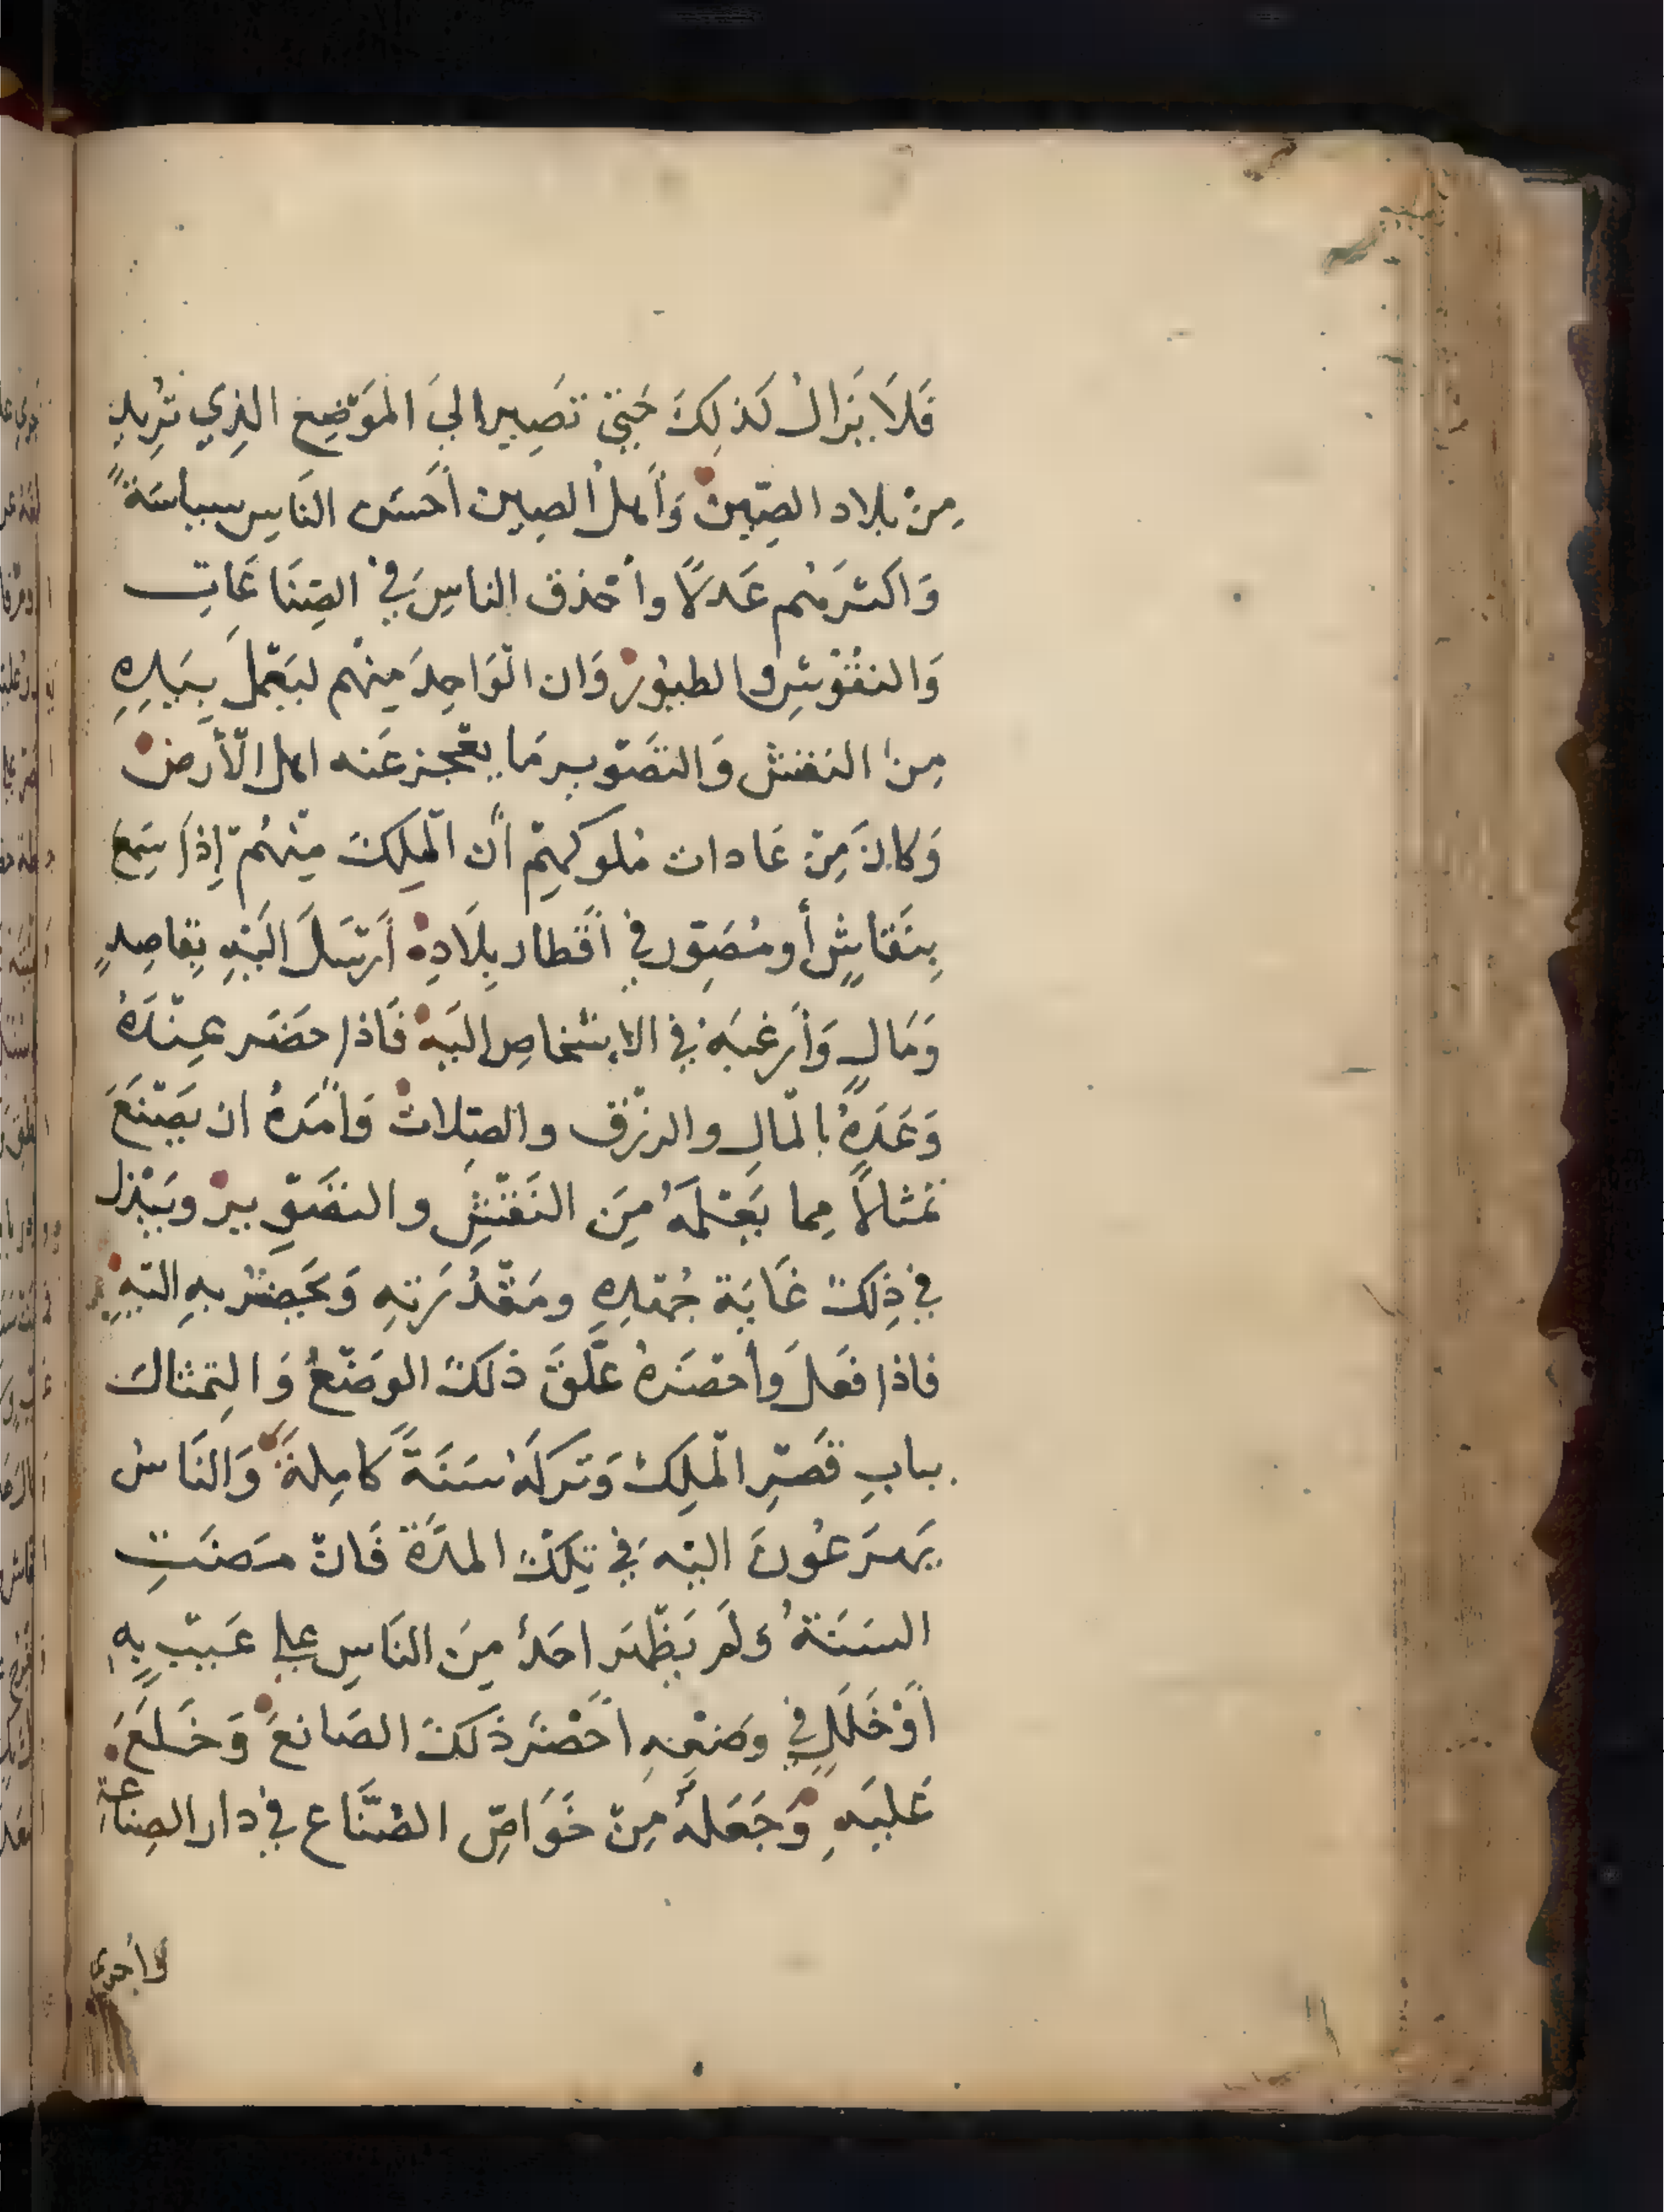 فَلَا يَزَالُ كَذلِكَ حَتّي تَصِير الي المَوْضِع الذِي تُرِيد
مِنْ بلاد الصِّين وَأَهل الصِين أحسَن النَاس سياسَةً
وَاكثرَهُم عَدلًا وأحْذق الناسِ فِي الصِنَاعَاتِ
وَالنقُوْشِ والطيُوْر وَان الوَاحِدَ مِنْهم ليَعْمل بِيَدِهِ
مِنَ النقش وَالتصَوير مَا يعْجز عَنه اهل الأرض
وَكانَ مِنْ عَادات مُلوكهِم أن المَلِك مِنْهُمْ إِذَا سَمِع
بِنَقاشٍ أو مُصَوِّر في اقطار بِلَادِهِ أَرْسَلَ الَيْهِ بِقاصِدٍ
وَمَالٍ وَأرغبَهُ في الاشخاصِ اليَهْ فَاذا حَضَر عِنْدَهُ
وَعَدَهُ بالمَالِ والرزْق والصِّلات وَأَمَرَهُ ان يَصْنَعَ
تمثالًا مِما يَعْمَلهُ مِنَ النَقْشِ والتصَوِير ويَبْذل
في ذِلكَ غَايَة جُهْدِهِ ومَقْدُرَتِهِ وَيَحضُر بهِ اليْهِ
فاذا فعَلَ وأحْضَرهُ عَلَّقَ ذلكَ الوَضْعُ وَالتِمْثالَ
بِبابِ قَصْرِ المَلِكْ وَتَركَهُ سَنَةً كامِلةً وَالنَاسُ
يَهرَعُونَ اليْه فِي تِلكَ المدَّة فَانْ مَضَتِ
السَنَةُ وَلَم يَظْهَر احَدٌ مِنَ النَاسِ عَلي عَيبٍ بِهِ
أوْ خَلَلٍ في وَضْعِهِ أحْضَر ذَلكَ الصَانعَ وَخَلَعَ
عَليَهِ وَجَعَلهُ مِنْ خَوَاصِّ الصُنَّاع فِي دار الصِناعَة
وَأجري